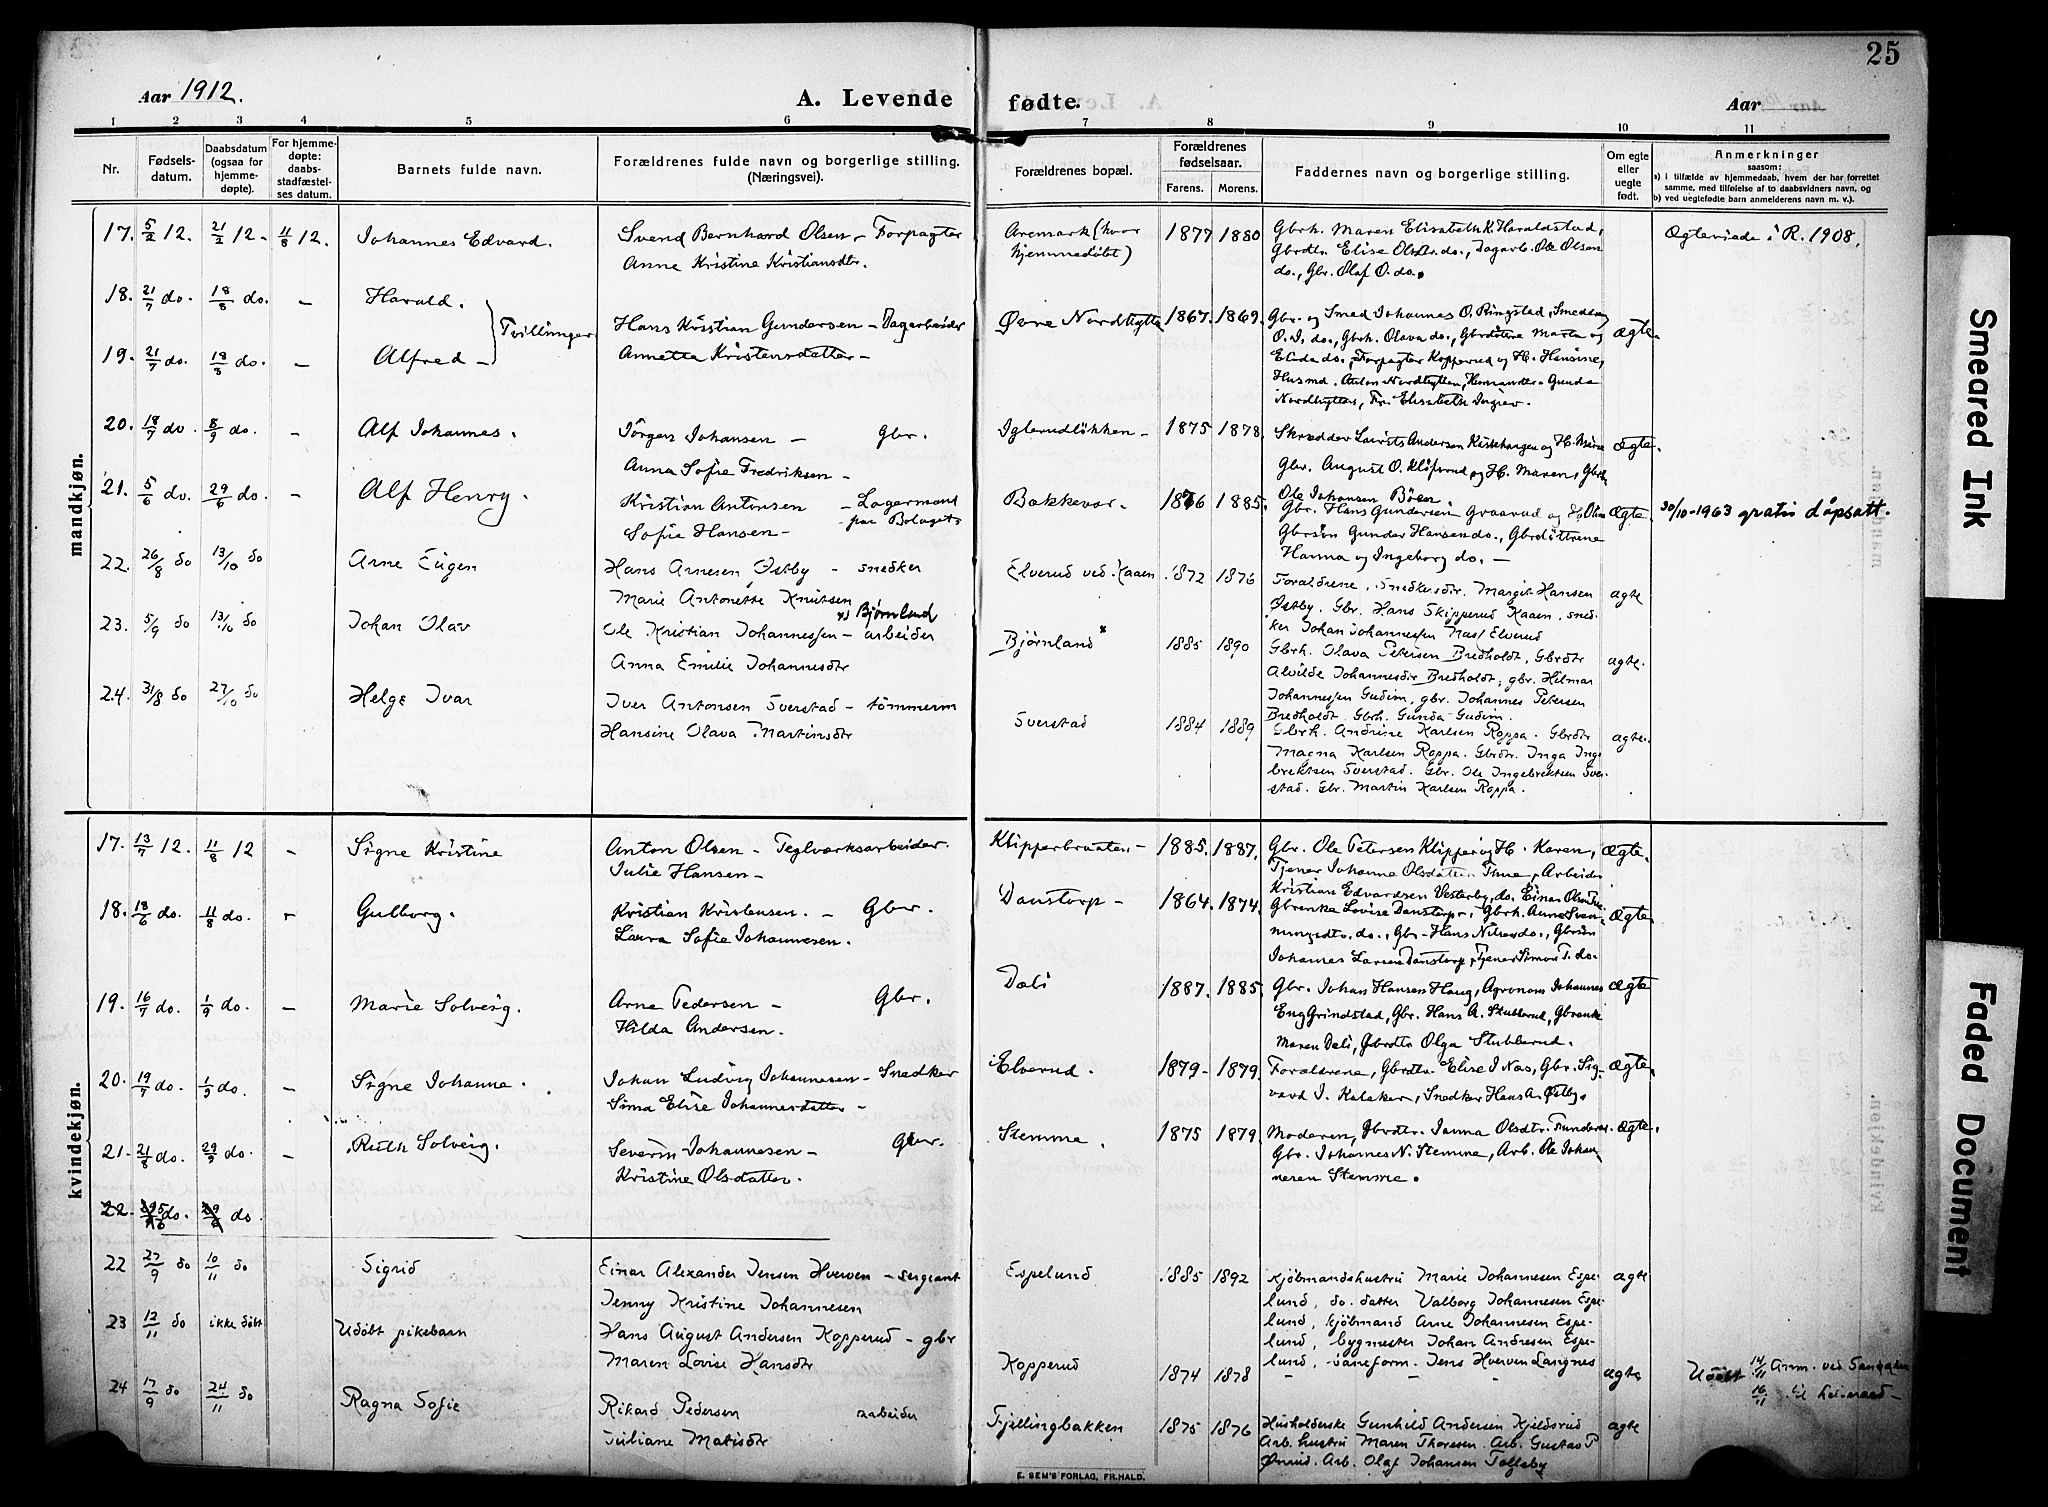 25
Aar 1912.
A. Levende fødte.
Aar
1 2 3 4 5 6 7 8 9 10 11
Nr.
Fødselsdatum.
Daabsdatum (ogsaa for hjemmedøpte).
For hjemmedøpte: daabsstadfæstelses datum.
Barnets fulde navn.
Forældrenes fulde navn og borgerlige stilling.
(Næringsvei).
Forældrenes bopæl.
Forældrenes fødselsaar.
Farens. Morens.
Faddernes navn og borgerlige stilling.
Om egte eller uegte født.
Anmerkninger
saasom:
a) i tilfælde av hjemmedaab, hvem der har forrettet
samme, med tilføielse af to daabsvidners navn, og
b) ved uegtefødte barn anmelderens navn m. v.).
mandkjøn.
17. 5/2 12. 21/2 12. 11/8 12. Johannes Edvard. Svend Bernhard Olsen - Forpagter Aremark (hvor 1877 1880 Gbrh. Maren Elisabeth K. Haraldstad, Ægteviede i R. 1908.
Anne Kristine Kristiansdtr. hjemmedøbt) Gbrdtr. Elise Olsdtr. do., Dagarb. Ole Olsen
do., Gbr. Olaf O. do.
18. 21/7 do. 18/8 do. - Harald.
Tvillinger Hans Kristian Gundersen - Dagarbeider Øvre Nordhytta 1867. 1869. Gbr. og Smed Johannes O. Ringstad, Ægte.
19. 21/7 do. 18/8 do. - Alfred - Annetta Kristensdatter - O. J. do., Gbrh. Olava do., Gbrdøtrene Marta og
Elida do., Forpagter Kopperud og H. Hansine,
Husmd. Anton Nordhytten, Gunda
Nordhytten, Fr. Elisabeth
20. 18/7 do. 8/9 do. - Alf Johannes. Jörgen Johansen - Gbr. Iglerudløkken - 1875 1878. Skrædder Laurits Andersen og H. Ægte.
Anna Sofie Fredriksen - Gbr. August O. Kløfverud og H. Maren, Gbr.
Ole Johansen Böen.
21. 5/6 do. 29/6 do. - Alf Henry. Kristian Antonsen - Lagermand Bakkevar. 1876 1885. Gbr. Hans Gundersen Graarud og H. Ægte. 30/10-1963 gratis dåpsatt.
Sofie Hansen - paa Bolaget Gbrsön Gunder Hansen do., Gbrdöttrene
Hanna og Ingeborg do. -
22. 26/8 do 13/10 do Arne Eugen Hans Arnesen Østby - snedker Elverud ved Kaaen 1872 1876 Forældrene. Snedkersdtr. Margit Hansen ægte
Marie Antonette Knutsen Østby. Gbr. Hans Skipperud Kaaen, sned-
ker Johan Johannessen Nas/ Elverud
23. 5/9 do 13/10 do Johan Olav x) Bjørnlund
Ole Kristian Johannessen - arbeider Bjørnland x 1885 1890 Gbrh. Olava Petersen Bredholdt, Gbrdtr ægte.
Anna Emilie Johannesdtr Alvilde Johannesdtr Bredholdt, gbr. Hilmar
Johannessen Gudim, gbr. Johannes Petersen
Bredholdt. Gbrh. Gunda Gudim.
24. 31/8 do 27/10 do Helge Ivar Iver Antonsen Sverstad - tömmerm Sverstad 1884 1889 Gbrh. Andrine Karlsen Roppa. Gbrdtr ægte.
Hansine Olava Martinsdtr Magna Karlsen Roppa. Gbrdtr. Inga Inge-
brektsen Sverstad. Gbr. Ole Ingebrektsen Sver-
stad. Gbr. Martin Karlsen Roppa.
kvindekjøn.
17. 13/7 12. 11/8 12 - Signe Kristine Anton Olsen - Teglværksarbeider. Klipperbraaten - 1885. 1887. Gbr. Ole Petersen Klipper og H. Karen, Ægte.
Julie Hansen - Tjener Johanne Olsdatter Arbeider
Kristian Edvardsen Vesterby, do. Einar Olsen
18. 18/6 do. 11/8 do. - Gulborg. Kristian Kristensen. - Gbr. Danstorp - 1864. 1874. Gbrenke Lovise Danstorp, Gbrh. Anne Sven- Ægte
Laura Sofie Johannesen. do., Gbr. Hans Nilsen do., Gbrsön
Johannes Larsen Danstorp, Tjener Simon T. do.
19. 16/7 do. 1/9 do. - Marie Solveig. Arne Pedersen - Gbr. Dæli 1887. 1885. Gbr. Johan Hansen Haug, Agronom Johannes Ægte
Hilda Andersen. Eng Grindstad, Gbr. Hans A. Stubberud, Gbrenke
Maren Dæli, Gbrdtr Olga Stubberud.
20. 19/7 do. 1/9 do. - Signe Johanne. Johan Ludvig Johannesen - Snedker Elverud. 1879 - 1879. Forældrene, Gbrdtr. Elise J Nas, Gbr. Sig- Ægte.
Sina Elise Johannesdatter - vard J. Kalaker, Snedker Hans A. Østby
21. 21/8 do. 29/9 do. - Ruth Solveig. Severin Johannesen - Gbr. Stemme. 1875 1879. Moderen, Gbrdtr. Janna Olsdtr. Ægte.
Kristine Olsdatter. Gbr. Johannes N. Stemme, Arb. Ole Johan-
nesen Stemme.
22. do. do.
22 27/9 do 10/11 do Sigrid Einar Alexander Jensen Hverven - sergeant Espelund 1885 1892 Kjöbmandshustru Marie Johannesen Espe- ægte
Jenny Kristine Johannesen lund, do. datter Valborg Johannesen Espe-
lund, kjöbmand Arne Johannesen Espe-
lund, bygmester Johan Andresen Espe-
lund, Jens Hverven Langnes
23 13/11 do ikke döbt Udöbt pikebarn Hans August Andersen Kopperud - gbr Kopperud 1874 1878 - - - ægte Udöbt 14/11 Anm. ved
Maren Lovise Hansdtr 16/11 til
24 17/9 do 24/11 do Ragna Sofie Rikard Pedersen arbeider Fjellingbakken 1875 1876 Husholderske Gunhild Andersen Kjeldsrud ægte
Juliane Matisdtr Arb. hustru Maren Thoresen. Arb. Gustav P
Ørnud. Arb. Olaf Johansen Tolfsby
E. SEM'S FORLAG, FR.HALD.
Smeared Ink
Faded Document